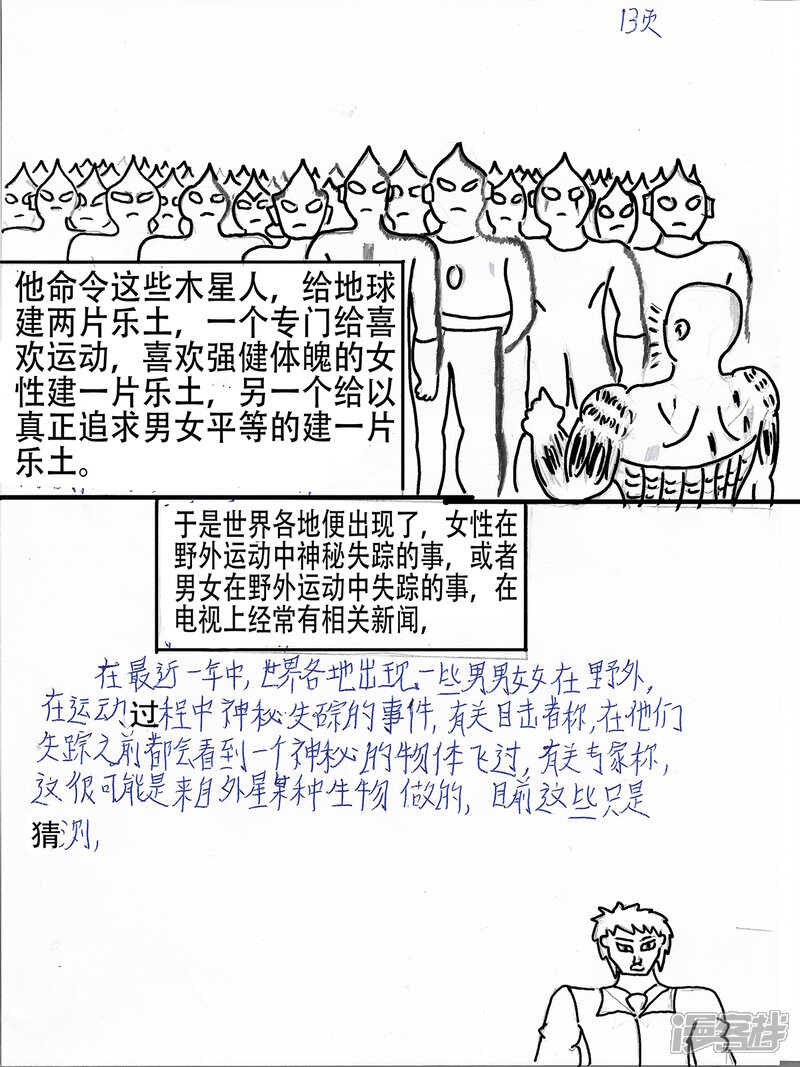 13页
他命令这些木星人，给地球
建两片乐土，一个专门给喜
欢运动，喜欢强健体魄的女
性建一片乐土，另一个给以
真正追求男女平等的建一片
乐土。
于是世界各地便出现了，女性在
野外运动中神秘失踪的事，或者
男女在野外运动中失踪的事，在
电视上经常有相关新闻，
在最近一年中，世界各地出现一些男男女女在野外，
在运动过程中神秘失踪的事件，有关目击者称，在他们
失踪之前都会看到一个神秘的物体飞过，有关专家称，
这很可能是来自外星某种生物做的，目前这些只是
猜测，
漫客栈